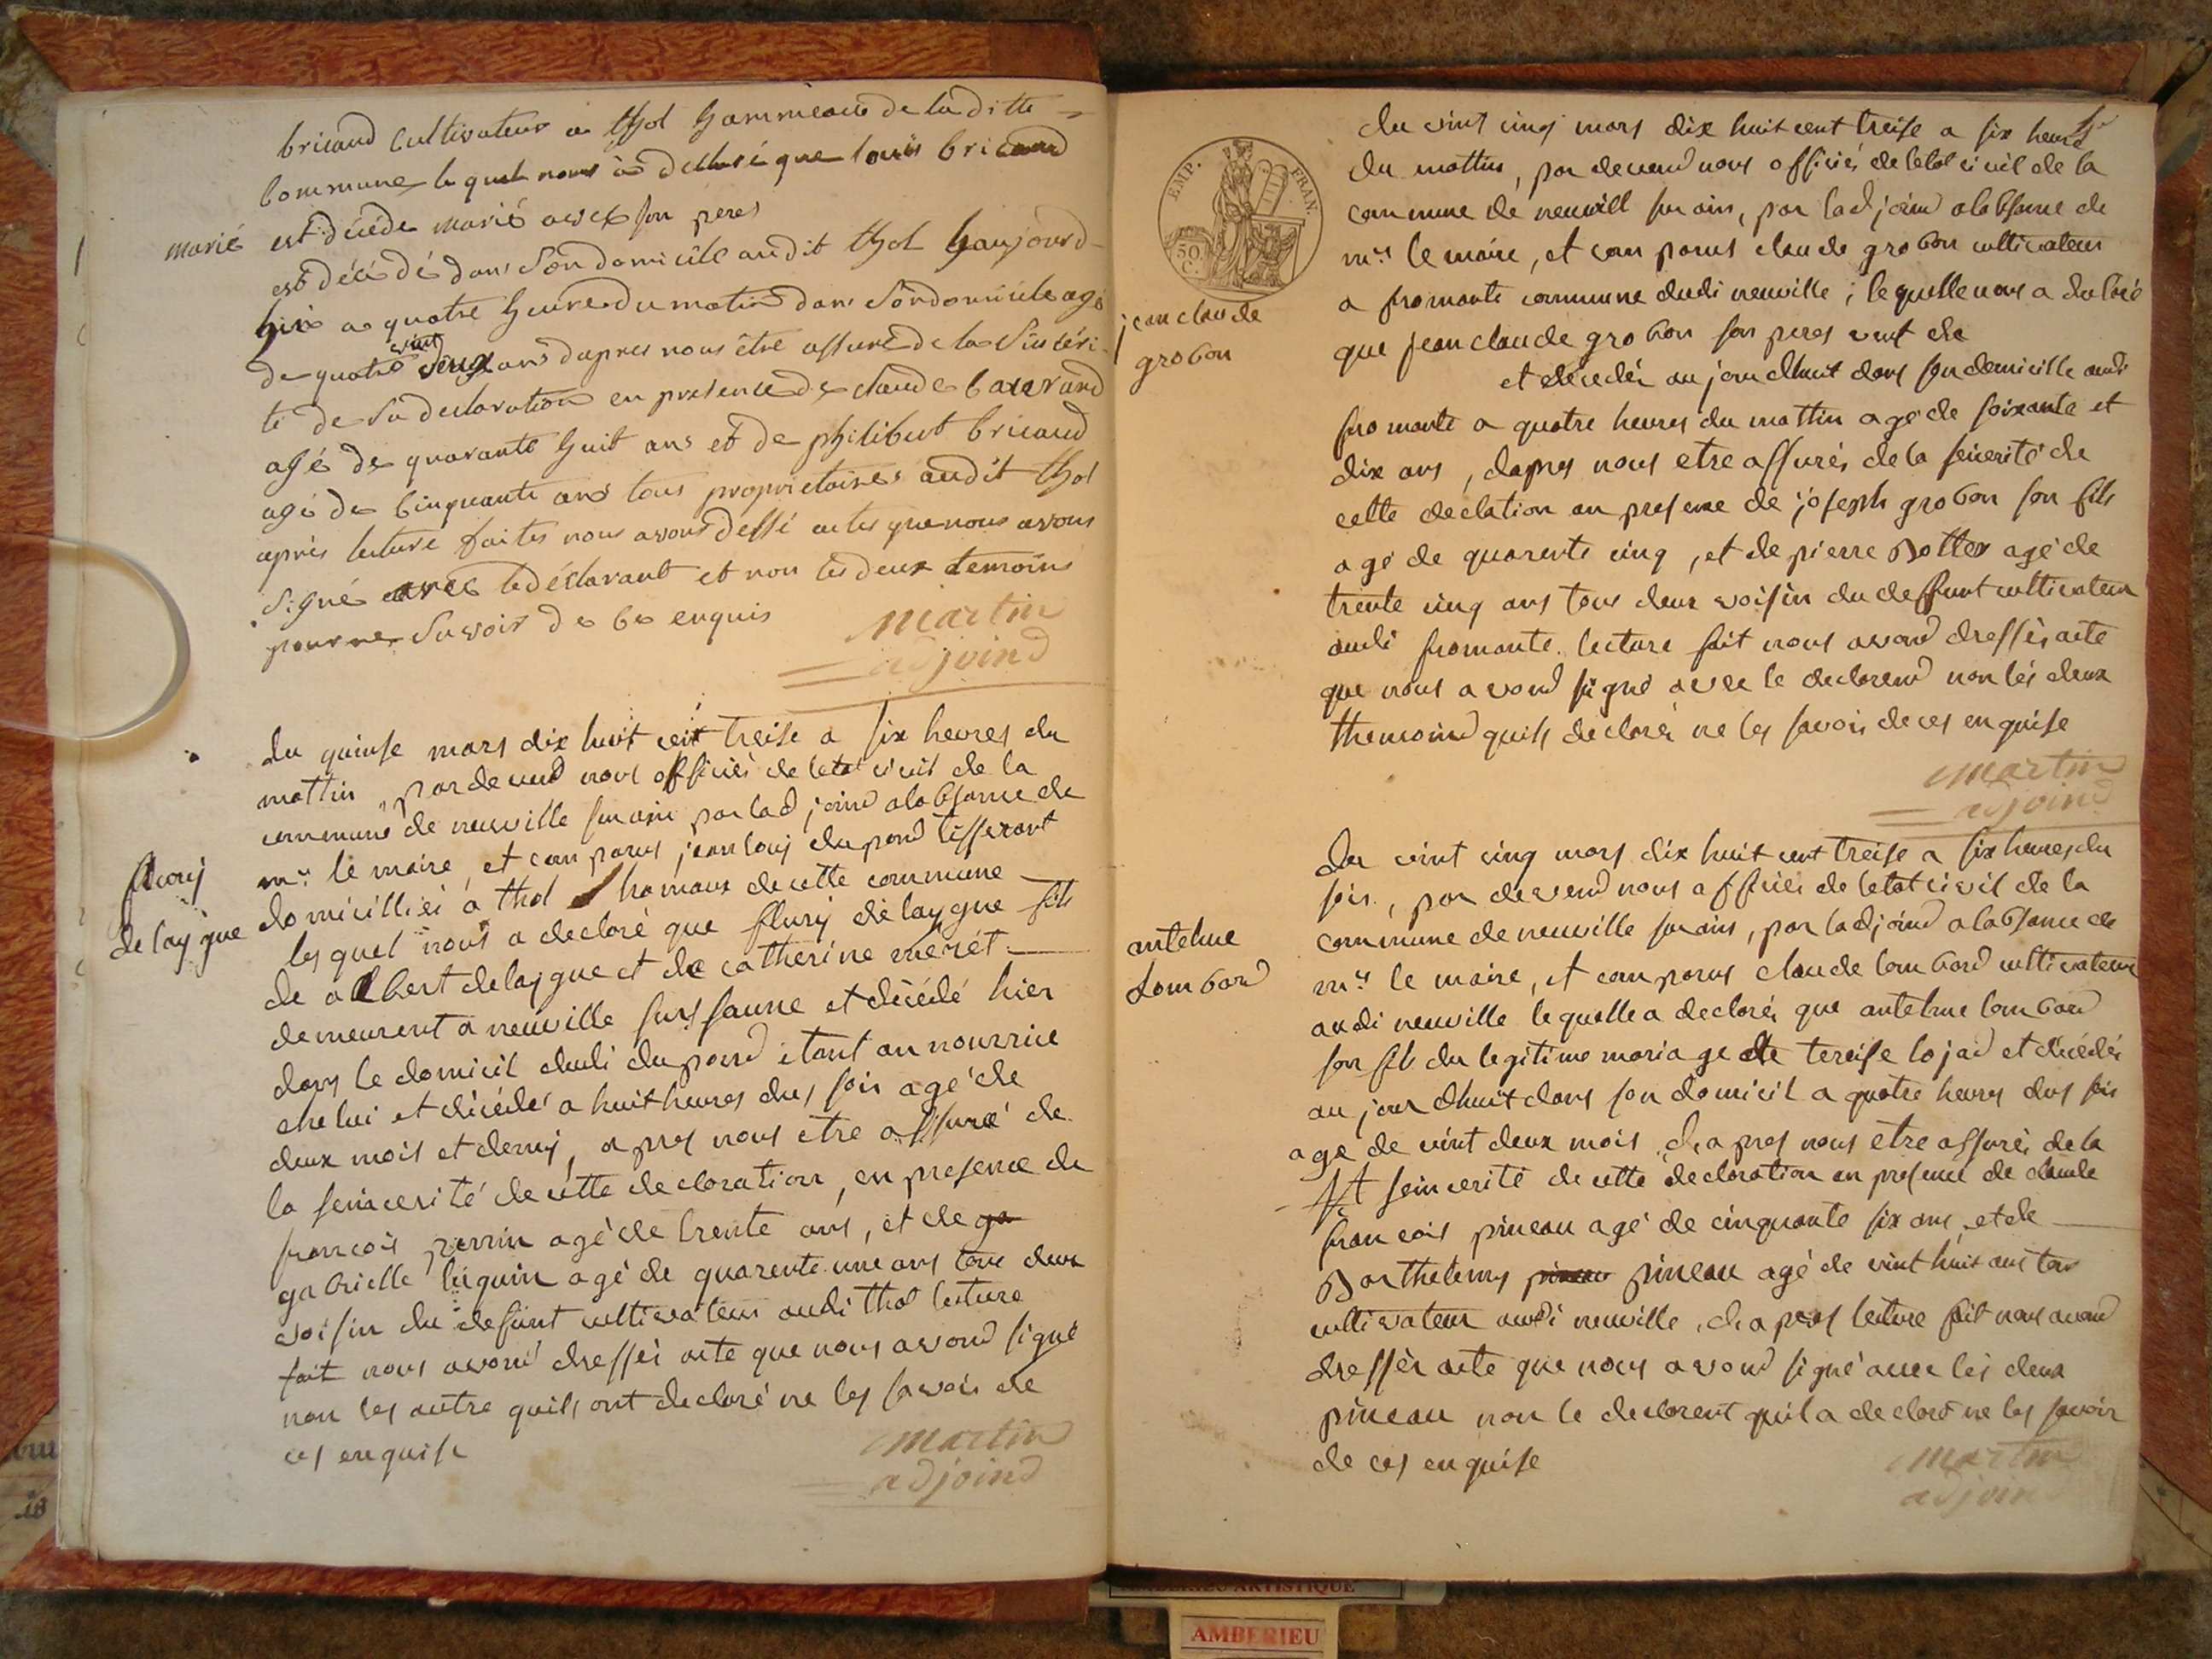 bricaud Cultivateur a thol hammeaux de la ditte
Commune le quel nous à declaré que louis bricaud
marié est décéde marié avec son peres
est décédé dans Son domicile au dit thol haujourd
hui a quatre heure du matin dans Son domicile agé
de quatre vint deux ans dapres nous être assuré de la Sincéri
té de Sa declaration en presence de claude
agé de quarante huit ans et de philibert bricaud
agé de Cinquante ans tous proprietaires audit thol
après lecture faites nous avons dessé actes que nous avons
Signé avec le déclarant et non les deux temoins
pour ne Savoir de Ce enquis
martin
adjoind
du quinse mars dix huit cent treise a six heures du
mattin, par devend nous officiés de letat civil de la
commune de neuville sur ain par lad joind a labsance de
mr le maire, et comparus jean louis dupond tisserant
fleury
delaygue
domicilliéi a thol hamaux de cette commune
lesquel nous a declaré que flury delaygue fils
de albert delaygue et de catherine merét
demeurent a neuville sur saune et décédé hier
dans le domicil dudi dupond étant an nourrice
che lui et décédé a huit heures dus soir agé de
deux mois et demy, apres nous etre assuré de
la seincerité de cette decloration, en presence de
francois perrin agé de trente ans, et de ga
gabrielle luguin agé de quarente une ans tous deux
voisin du defunt cultivateur audi thol lecture
fait nous avond dressér acte que nous avond signé
non les autre quils ont declaré ne les savoir de
ces enquise
martin
adjoind
EMP. FRAN.
50 C.
du vint cinq mars dix huit cent treise a six heures
du mattin, par devend nous officiés de letat civil de la
commune de neuvill sur ain, par lad joind a labsance de
mr le maire, et comparus claude grobon cultivateur
a fromente commune dudi neuville; le quelle nous a declaré
jean claude
grobon
que jean claude grobon son peres veuf de
et décedér au jourdhuit dans son domicille audi
fromente a quatre heures du mattin agé de soixante et
dix ans, dapres nous etre assurér de la seicerité de
cette declation an presence de joseph grobon son fils
agé de quarente cinq, et de pierre Botter agé de
trente cinq ans tous deux voisin du deffunt cultivateur
audi fromente lecture fait nous avond dressér acte
que nous avond signé avec le declarend non les deux
themoind quils declarér ne les savoir de ces enquise
martin
adjoind
du vint cinq mars dix huit cent treise a six heures du
soir, par devend nous officiér de letat civil de la
commune de neuville sur ains, par ladjoind a labsance de
antelme
Lombard
mr le maire, et comparus claude lombard cultivateur
audi neuville le quelle a declarér que antelme lombard
son fils du legitime mariage de tereise lojad et décédér
au jour dhuit dans son domicil a quatre heures dus soir
age de vint deux mois dapres nous etre assurér de la
seincerité de cette decloration an presence de claude
francois pineau agé de cinquante six ans, et de
Barthelemy pineau pineau agé de vint huit ans tous
cultivateur audi neuville, dapres lecture fait nous avond
dressér acte que nous avond signé avec les deux
pineau non le declorent quil a declaré ne les savoir
de ces enquise
martin
adjoind
AMBERIEU ARTISTIQUE
AMBERIEU